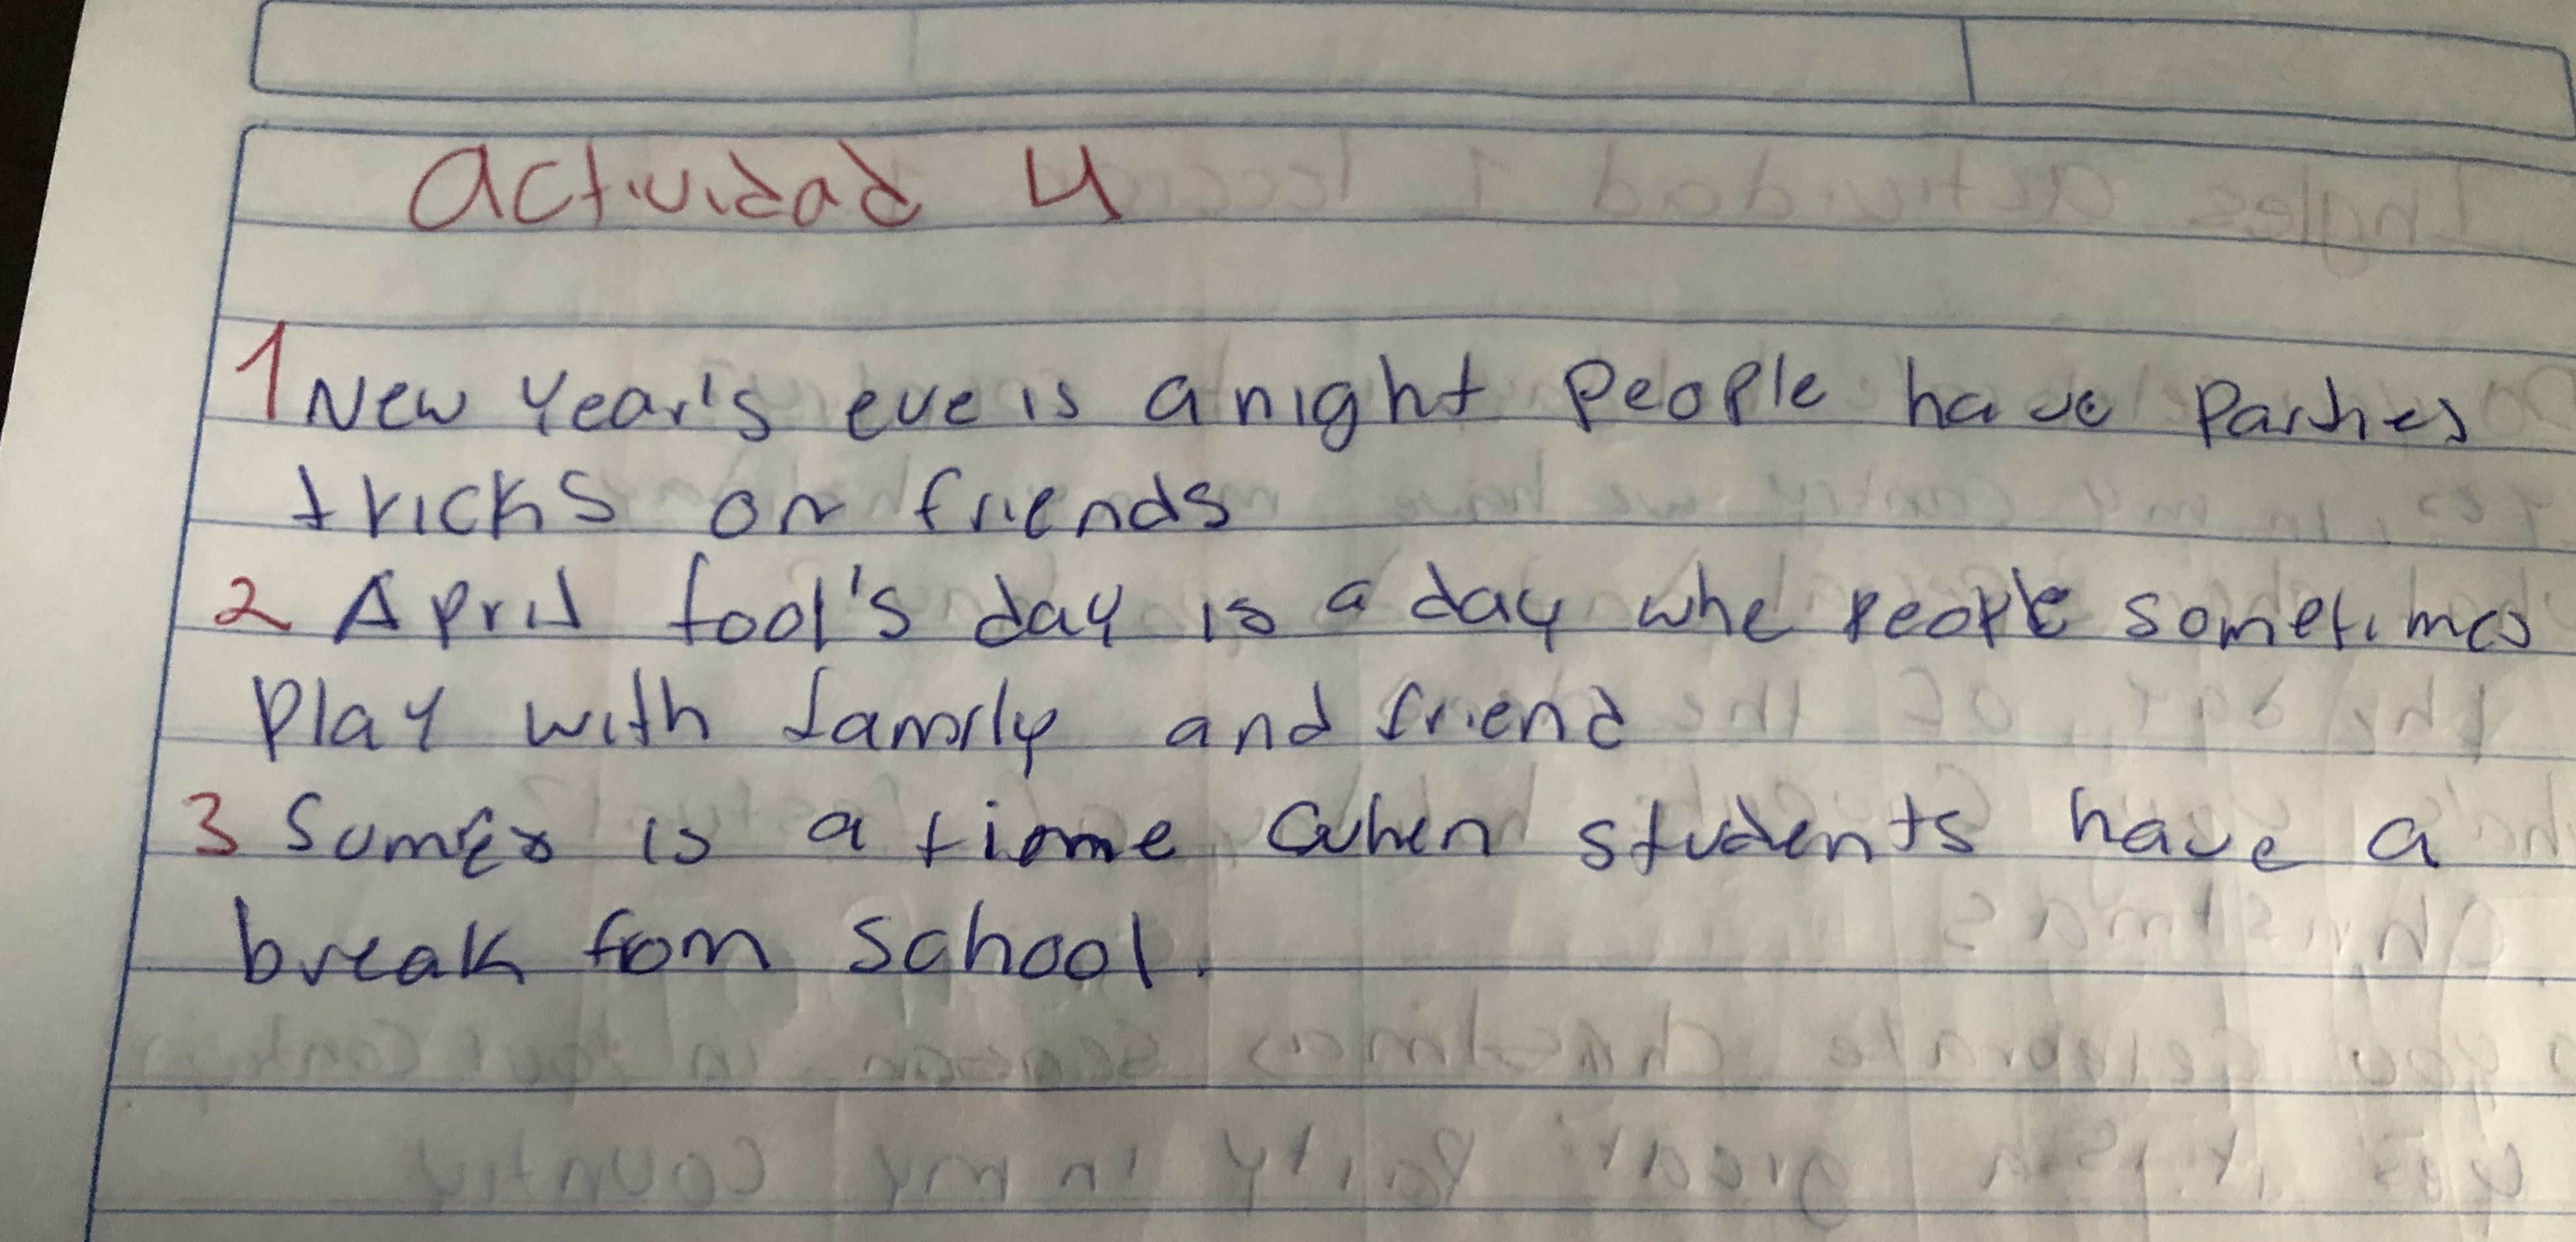 actividad 4
1 New Year's eve is a night people have Parties
tricks on friends
2 April fool's day is a day whe people sometimes
Play with family and friend
3 Sumer is a time when students have a
break fom school.